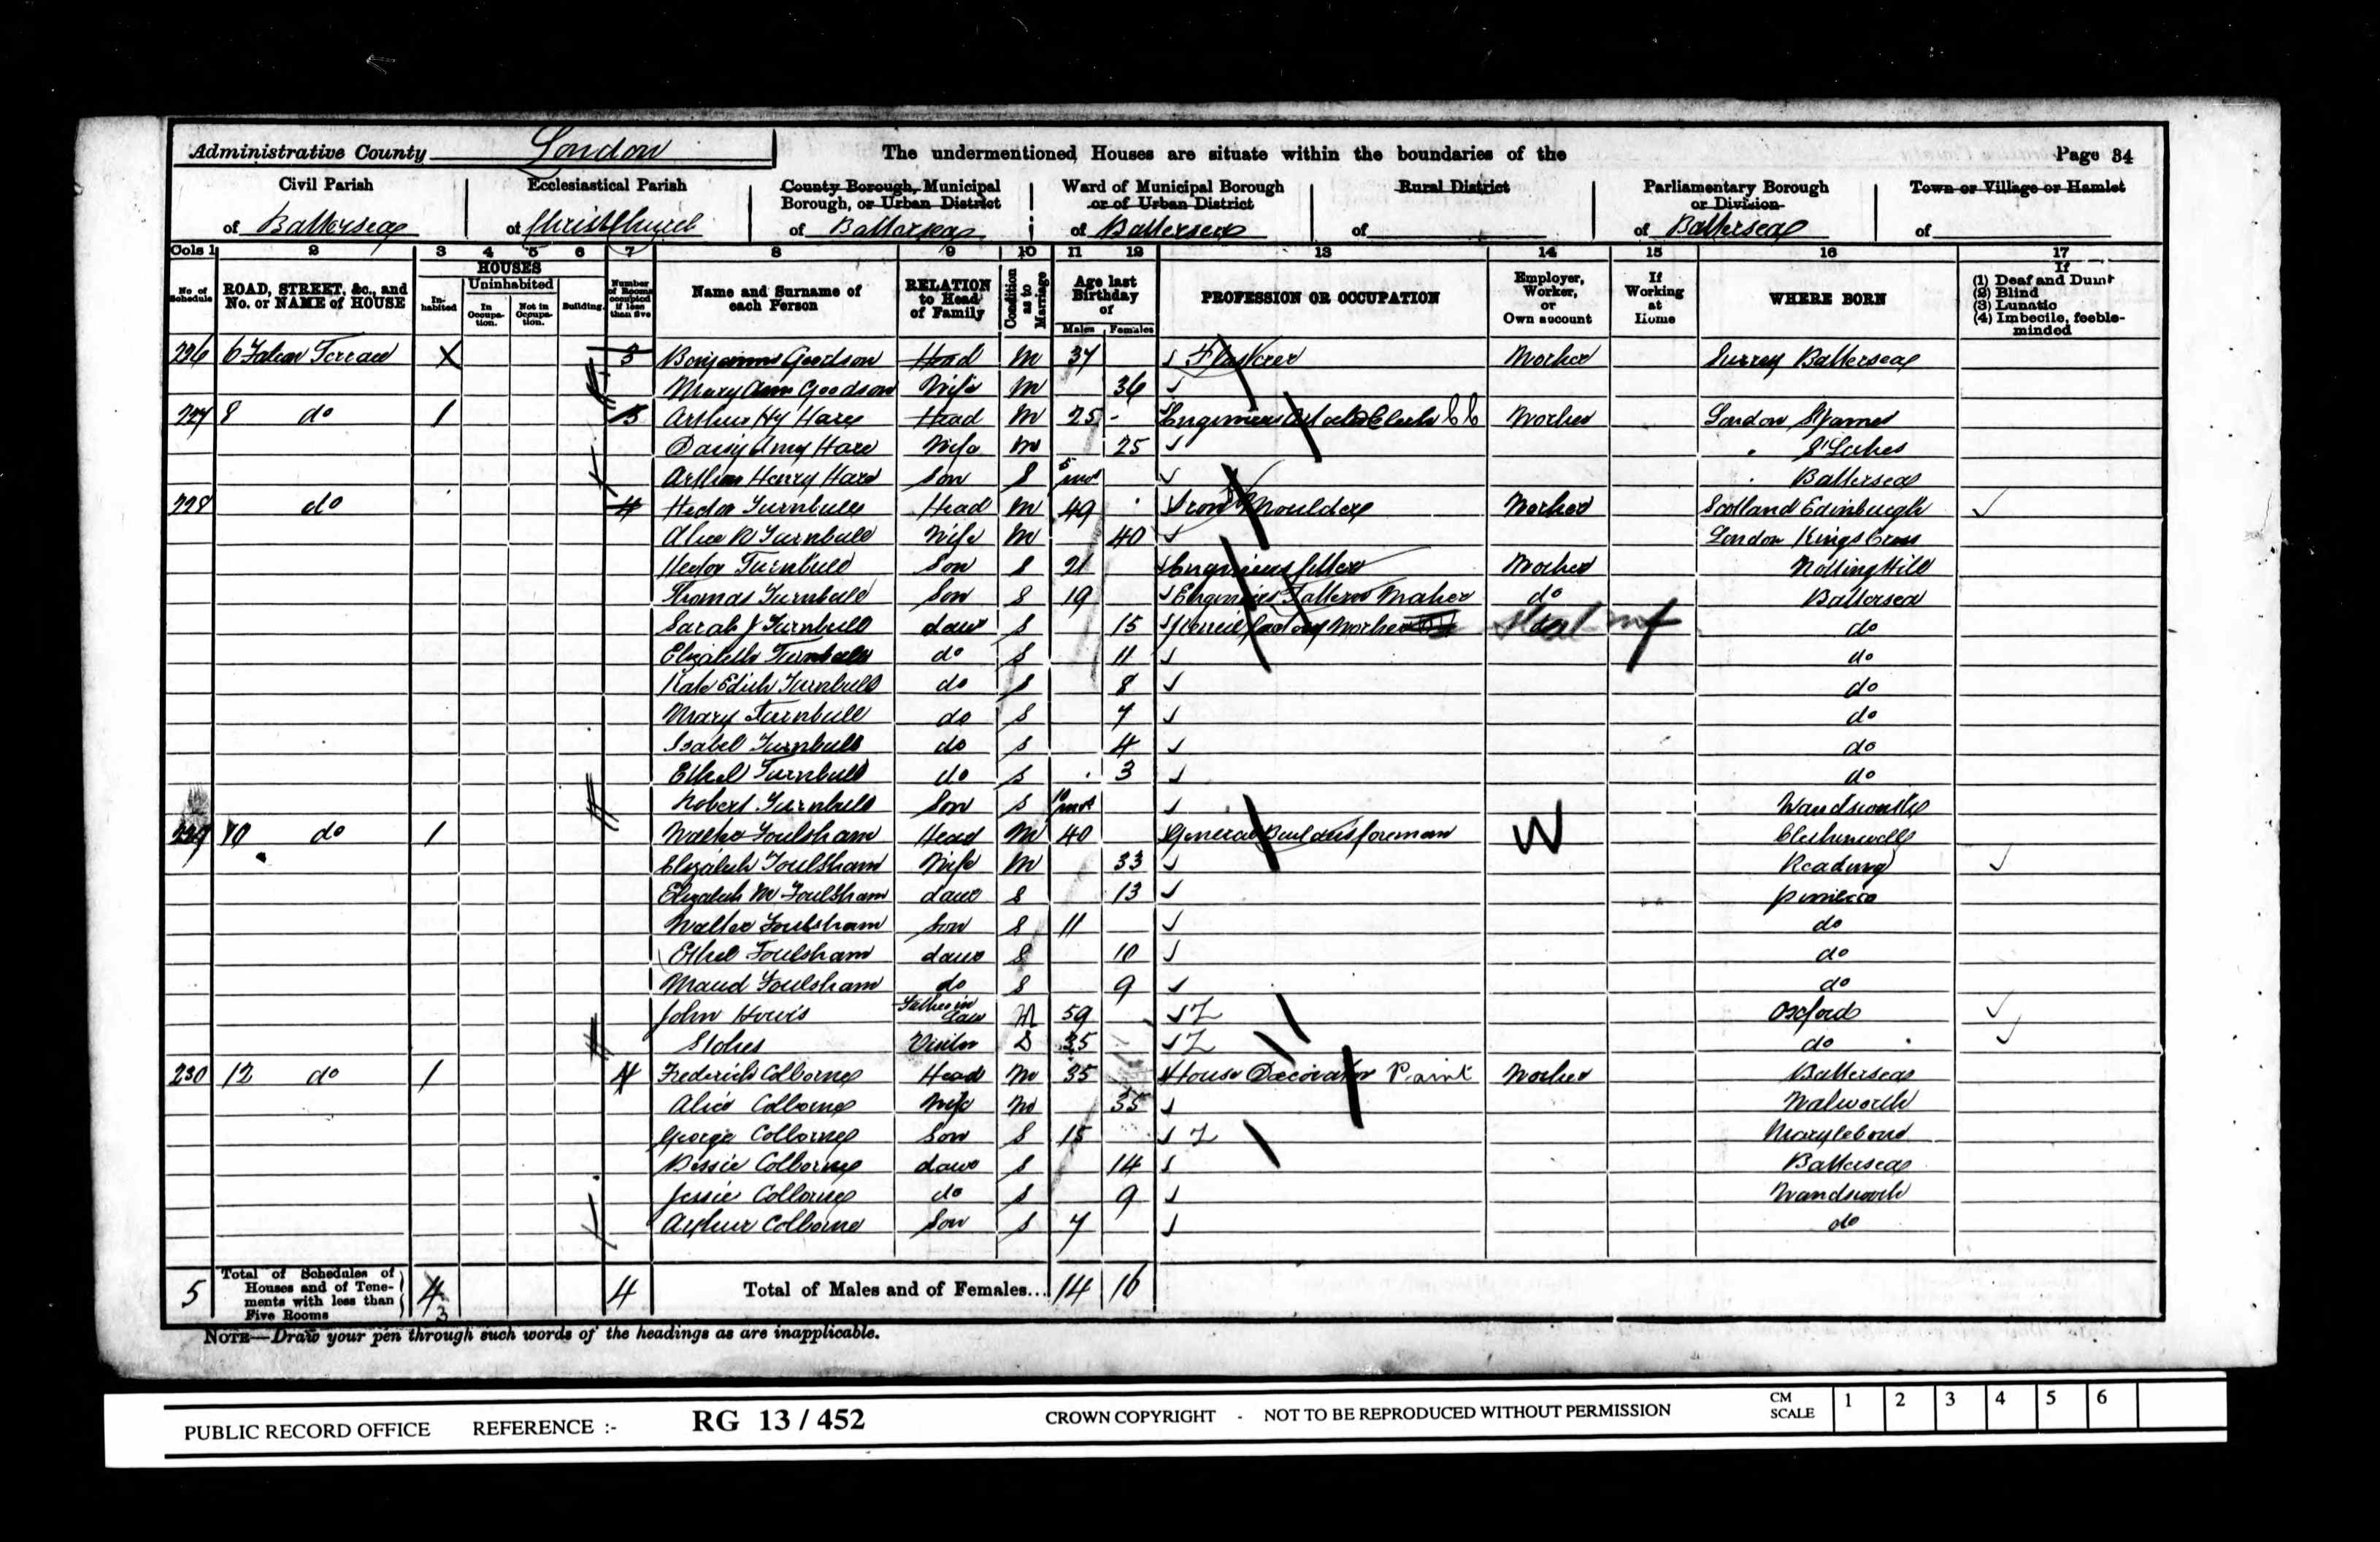 Administrative County London The undermentioned Houses are situate within the boundaries of the Page 34
Civil Parish Ecclesiastical Parish County Borough, Municipal Borough, or Urban District Ward of Municipal Borough or of Urban District Rural District Parliamentary Borough or Division Town or Village or Hamlet
of Battersea of Christchurch of Battersea of Battersea of of Battersea of
Cols 1 2 3 4 5 6 7 8 9 10 11 12 13 14 15 16 17
No. of Schedule ROAD, STREET, &c., and No. or NAME of HOUSE HOUSES Inhabited Uninhabited In Occupation. Not in Occupation. Building. Number of Rooms occupied if less than five Name and Surname of each Person RELATION to Head of Family Condition as to Marriage Age last Birthday of Males Females PROFESSION OR OCCUPATION Employer, Worker, or Own account If Working at Home WHERE BORN If (1) Deaf and Dumb (2) Blind (3) Lunatic (4) Imbecile, feeble-minded
226 6 Terrace X 3 Benjamin Goodson Head M 37 Worker Surrey Battersea
Mary Ann Goodson Wife M 36
227 8 do 1 3 Arthur Hy Hare Head M 25 - Engineers Clerk Worker London St James
Daisy Amy Hare Wife M 25 St Lukes
Arthur Henry Hare Son S 5 mos Battersea
228 do 4 Hector Turnbull Head M 49 Iron Moulder Worker Scotland Edinburgh
Alice M Turnbull Wife M 40 London Kings Cross
Hector Turnbull Son S 21 Engineers fitter Worker Notting Hill
Thomas Turnbull Son S 19 Engineers Pattern Maker do Battersea
Sarah J Turnbull daur S 15 Pencil factory Worker do
Elizabeth Turnbull do S 11 do
Kate Edith Turnbull do S 8 do
Mary Turnbull do S 7 do
Isabel Turnbull do S 4 do
Ethel Turnbull do S 3 do
Robert Turnbull Son S 10 mos Wandsworth
229 10 do 1 Walter Foulsham Head M 40 General Builders foreman W Clerkenwell
Elizabeth Foulsham Wife M 33 Reading
Elizabeth M Foulsham daur S 13 Pimlico
Walter Foulsham Son S 11 do
Ethel Foulsham daur S 10 do
Maud Foulsham do S 9 do
John Father in Law 59 Oxford
Stokes Visitor S 35 do
230 12 do 1 4 Frederick Colborne Head M 35 House Decorator Paint Worker Battersea
Alice Colborne Wife M 35 Walworth
George Colborne Son S 15 Marylebone
Bessie Colborne daur S 14 Battersea
Jessie Colborne do S 9 Wandsworth
Arthur Colborne Son S 7 do
5 Total of Schedules of Houses and of Tenements with less than Five Rooms 4 3 4 Total of Males and of Females... 14 16
NOTE—Draw your pen through such words of the headings as are inapplicable.
PUBLIC RECORD OFFICE REFERENCE :- RG 13 / 452 CROWN COPYRIGHT - NOT TO BE REPRODUCED WITHOUT PERMISSION CM SCALE 1 2 3 4 5 6